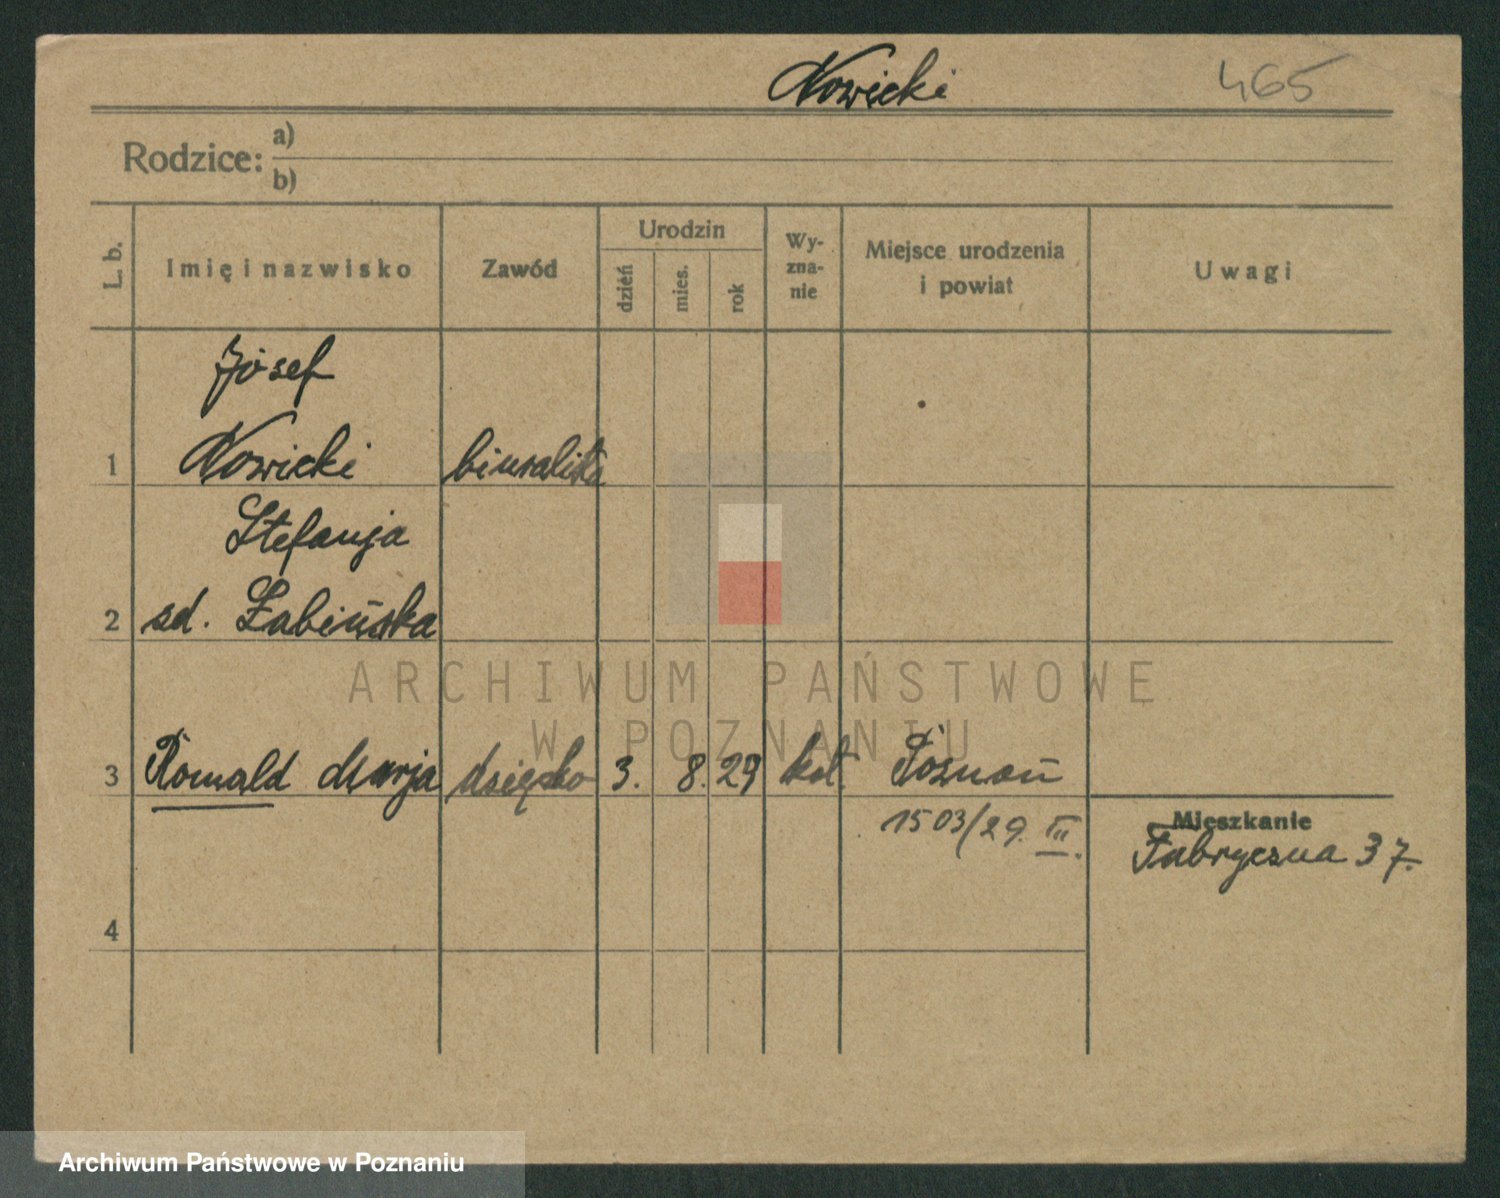 Nowicki
465
Rodzice: a)
b)
L. b.
Imię i nazwisko
Zawód
Urodzin
dzień
mies.
rok
Wy-
zna-
nie
Miejsce urodzenia
i powiat
Uwagi
Józef
1 Nowicki biuralista
Stefanja
2 zd. Łabińska
3 Romald Marja dziecko 3. 8. 29 kat. Poznań
1503/29. III.
Mieszkanie
Fabryczna 37.
4
ARCHIWUM PAŃSTWOWE
W POZNANIU
Archiwum Państwowe w Poznaniu